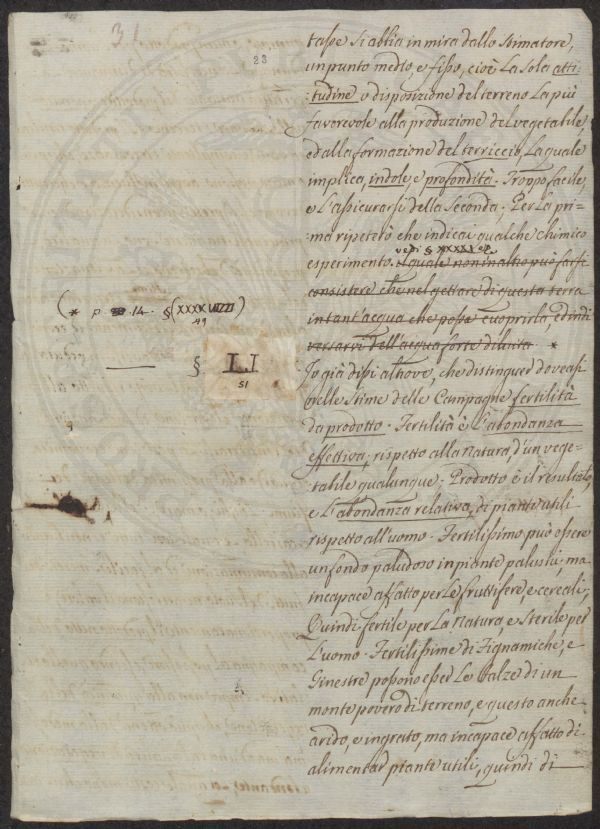 31
23
tasse si abbia in mira dallo Stimatore,
un punto medio, e fisso, cioè La sola atti-
:tudine o disposizione del terreno La più
favorevole alla produzione del vegetabile,
e dalla formazione del terriccio, La quale
implica, indole, e profondità. Troppo facile,
e L'assicurarsi della Seconda; Per La pri-
ma ripeterò che indicai qualche chimico
vedi § XXXXI
esperimento. il quale non in altro può farsi
consistere che nel gettare di questa terra
in tant'acqua che possa cuoprirla, ed indi
versarvi dell'acqua forte diluita *
(* p 14. § (XXXXVIIII)
49
§ LI
51
Io già dissi altrove, che distinguer doveasi
nelle Stime delle Campagne fertilità
da prodotto. Fertilità è L'abondanza
effettiva, rispetto alla Natura, d'un vege-
tabile qualunque; Prodotto è il resultato,
e L'abondanza relativa, di piante utili
rispetto all'uomo. Fertilissimo può essere
un fondo paludoso in piante palustri, ma
incapace affatto per Le fruttifere, e cereali;
Quindi fertile per La Natura, e Sterile per
L'uomo. Fertilissime di Tignamiche, e
Ginestre possono esser Le balze di un
monte povero di terreno, e questo anche
arido, e ingrato, ma incapace affatto di
alimentar piante utili, quindi di